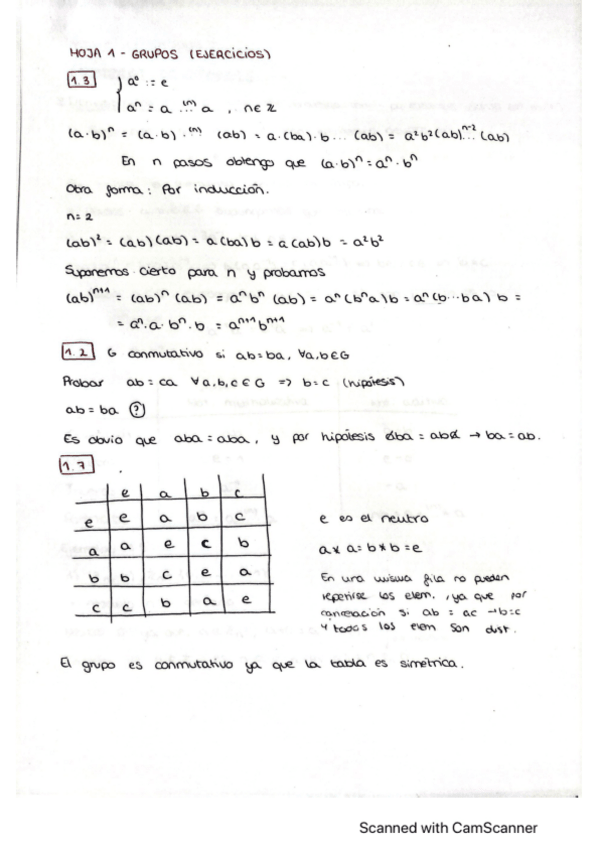 HOJA 1 - GRUPOS (EJERCICIOS)
1.3 { a⁰ := e
aⁿ = a .(n). a , n∈ℤ
(a·b)ⁿ = (a·b) .(n). (ab) = a·(ba)·b ... (ab) = a²b²(ab) .n-2. (ab)
En n pasos obtengo que (a·b)ⁿ = aⁿ·bⁿ
Otra forma: Por inducción.
n=2
(ab)² = (ab)(ab) = a(ba)b = a(ab)b = a²b²
Suponemos cierto para n y probamos
(ab)ⁿ⁺¹ = (ab)ⁿ (ab) = aⁿbⁿ (ab) = aⁿ(bⁿa)b = aⁿ(b...ba) b =
= aⁿ.a.bⁿ.b = aⁿ⁺¹bⁿ⁺¹
1.2 G conmutativo si ab=ba, ∀a,b∈G
Probar ab = ca ∀a,b,c∈G => b=c (hipótesis)
ab = ba ?
Es obvio que aba = aba, y por hipótesis aba = aba → ba=ab.
1.7
e a b c
e e a b c
a a e c b
b b c e a
c c b a e
e es el neutro
a*a=b*b=e
En una misma fila no pueden
repetirse los elem., ya que por
cancelación si ab = ac → b=c
y todos los elem son dist.
El grupo es conmutativo ya que la tabla es simétrica.
Scanned with CamScanner